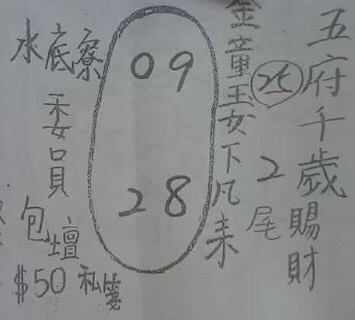 五府千歲賜財
25 2尾
金童玉女下凡來
09
28
水底寮
委員
包壇
$50 私簽